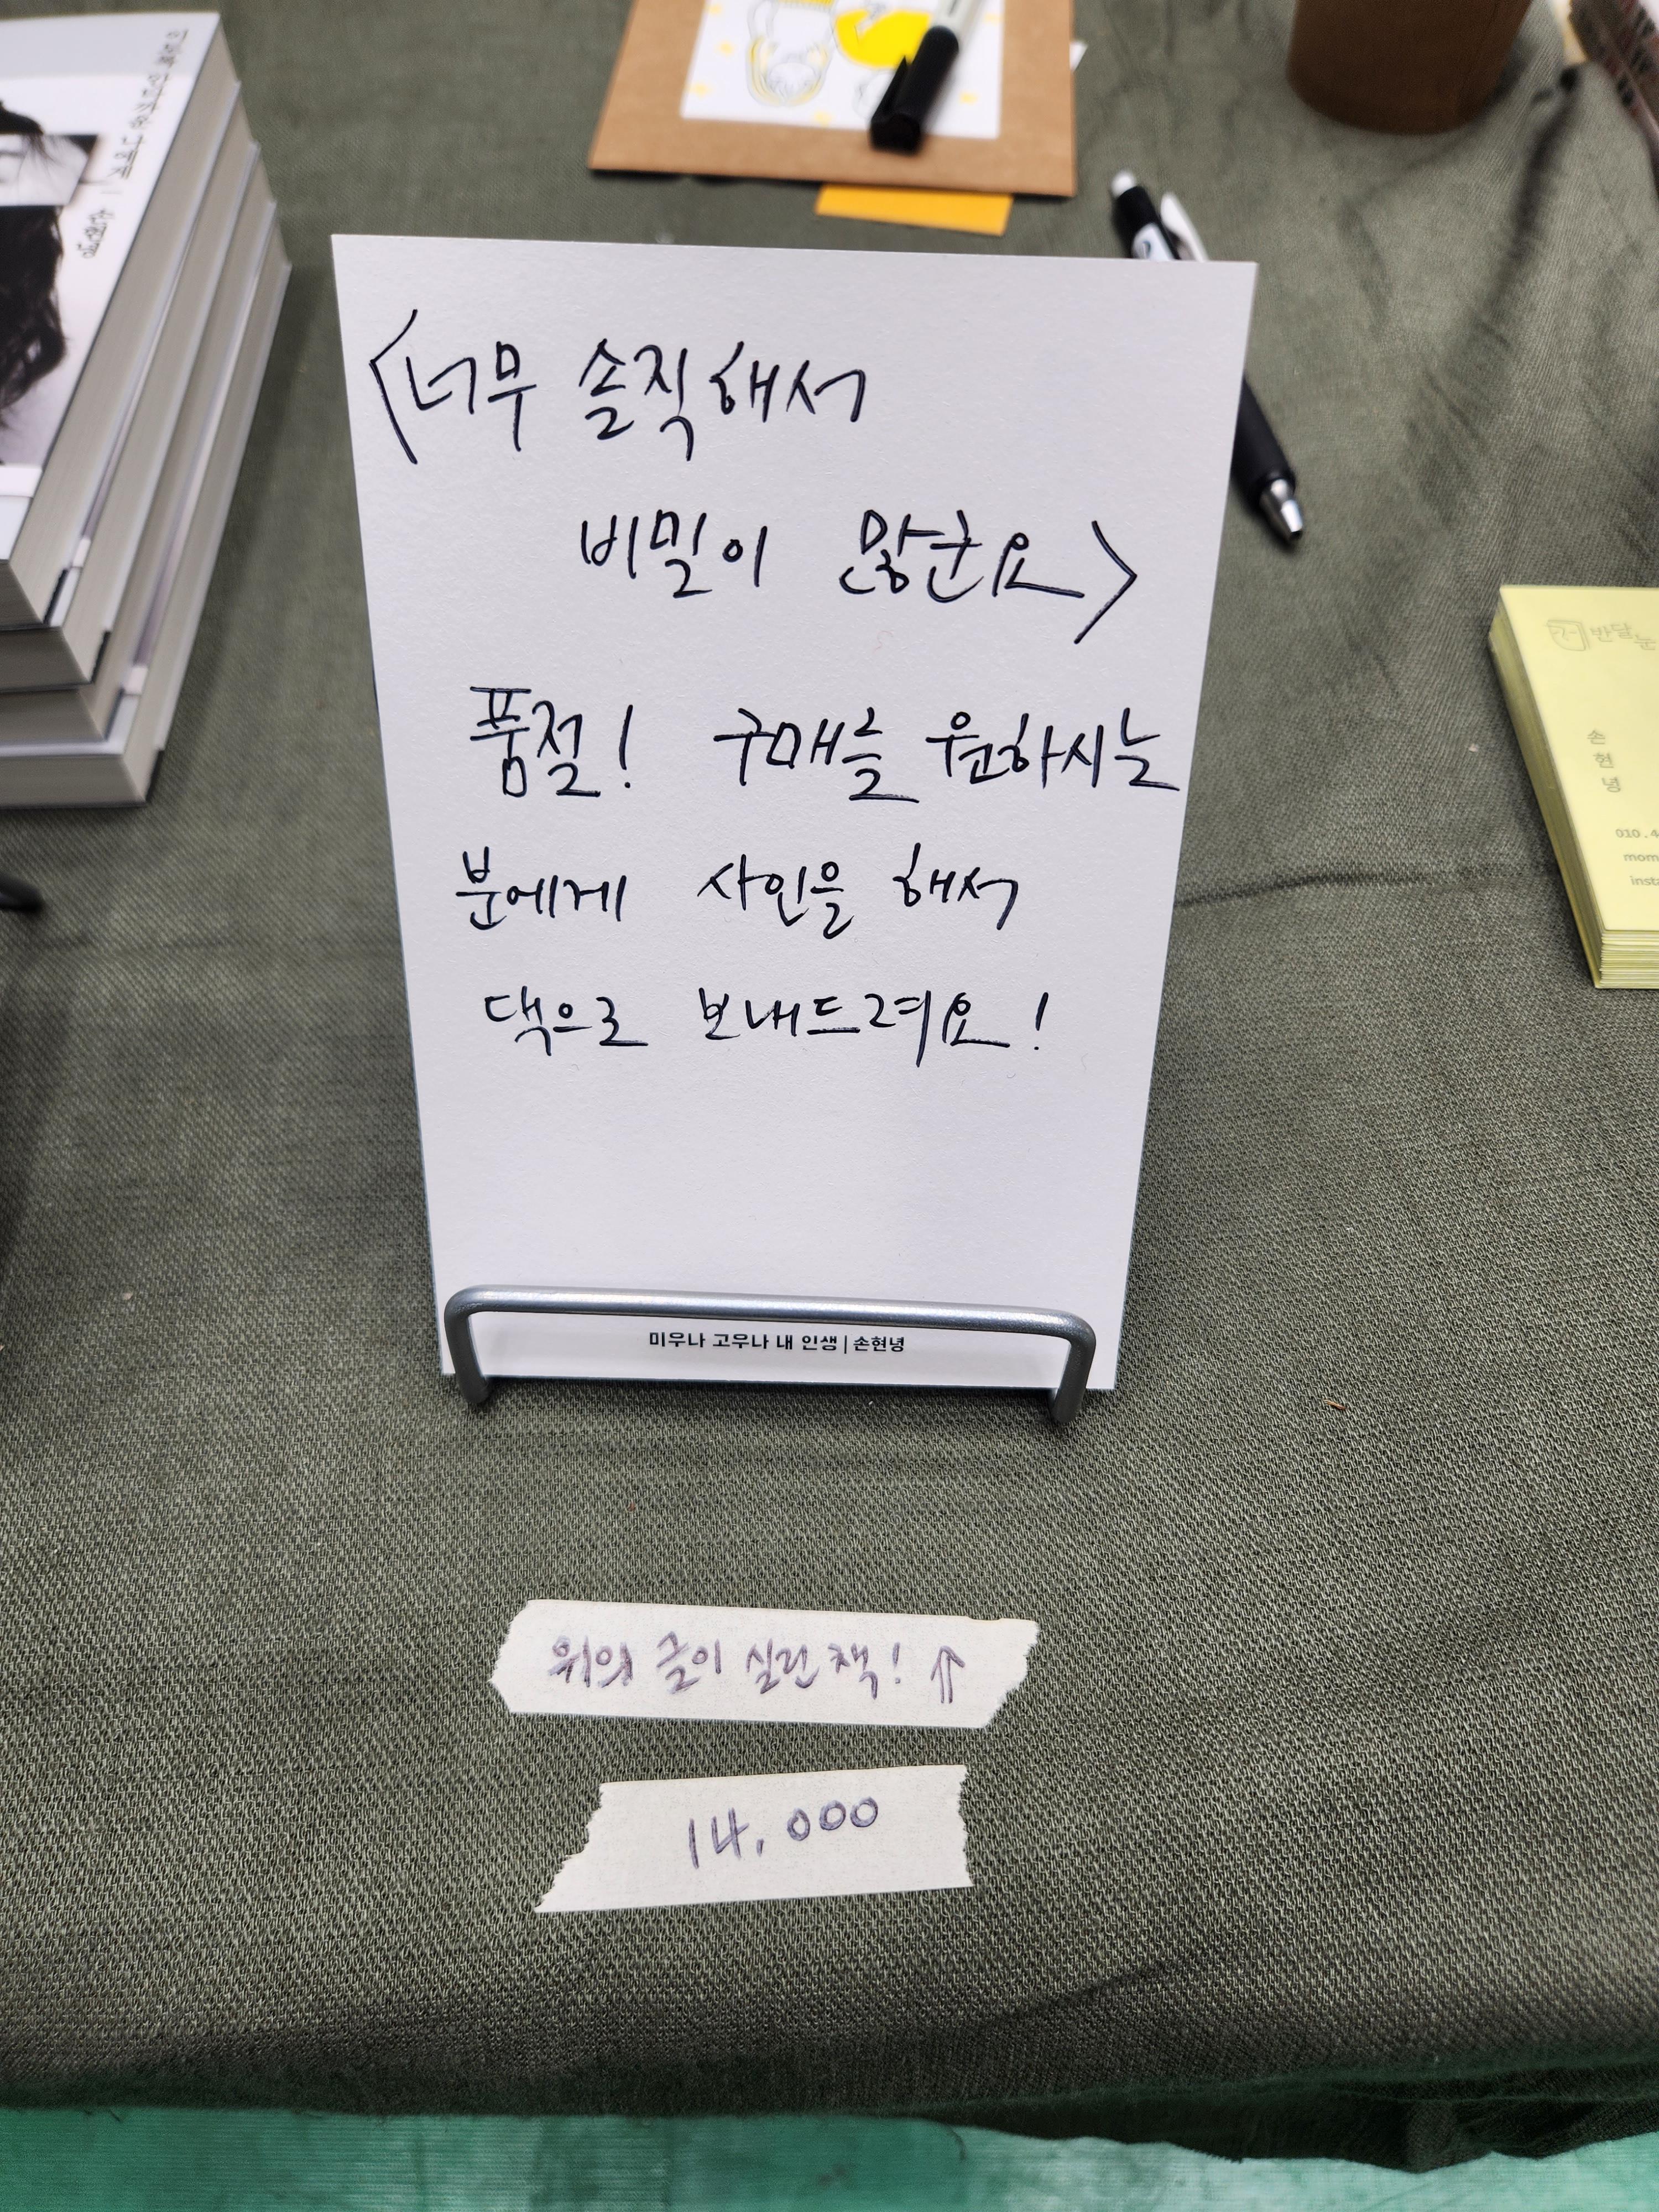 <너무 솔직해서
비밀이 많군요>
품절! 구매를 원하시는
분에게 사인을 해서
댁으로 보내드려요!
미우나 고우나 내 인생 | 손현녕
위의 글이 실린 책! ⇑
14,000
반달눈
손현녕
010.4
mom
insta